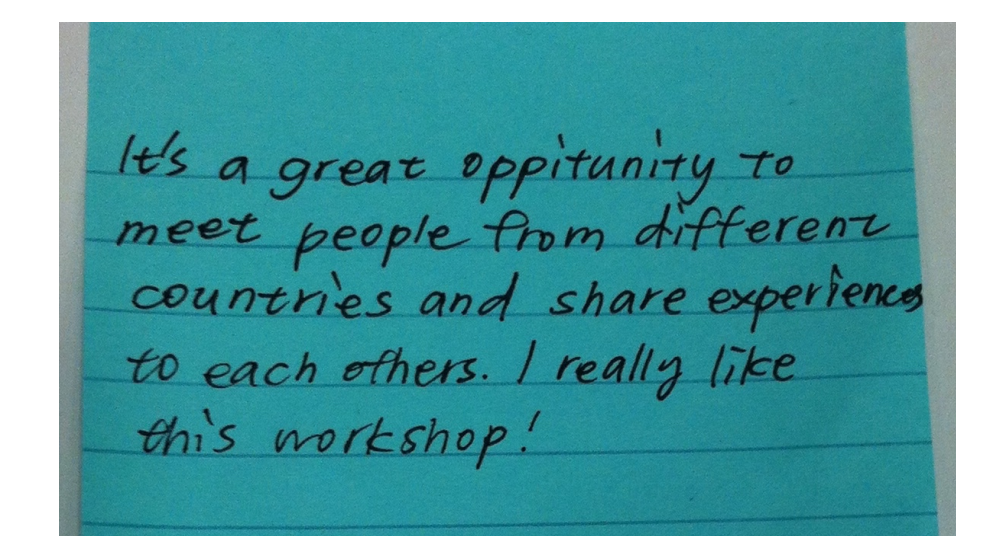 It's a great oppitunity to
meet people from different
countries and share experiences
to each others. I really like
this workshop!